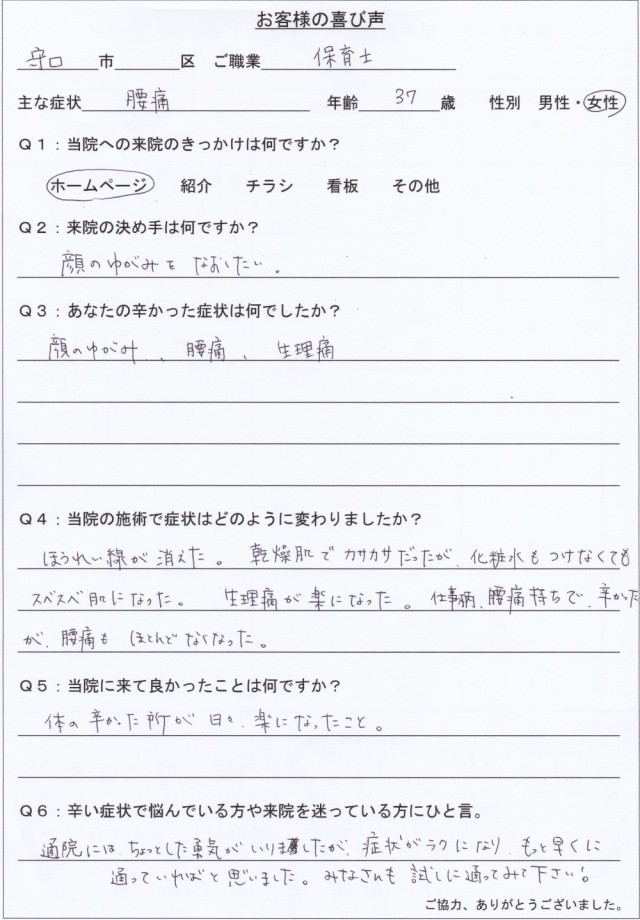 お客様の喜び声
守口市 区 ご職業 保育士
主な症状 腰痛 年齢 37 歳 性別 男性・女性
Q1:当院への来院のきっかけは何ですか?
ホームページ 紹介 チラシ 看板 その他
Q2:来院の決め手は何ですか?
顔のゆがみをなおしたい。
Q3:あなたの辛かった症状は何でしたか?
顔のゆがみ、、腰痛、生理痛
Q4:当院の施術で症状はどのように変わりましたか?
ほうれい線が消えた。乾燥肌でカサカサだったが、化粧水もつけなくても
スベスベ肌になった。生理痛が楽になった。仕事柄、腰痛持ちで、辛かった
が、腰痛もほとんどなくなった。
Q5:当院に来て良かったことは何ですか?
体の辛かった所が日々、楽になったこと。
Q6:辛い症状で悩んでいる方や来院を迷っている方にひと言。
通院には、ちょっとした勇気がいりましたが、症状がラクになり、もっと早くに
通っていればと思いました。みなさんも試しに通ってみて下さい!
ご協力、ありがとうございました。